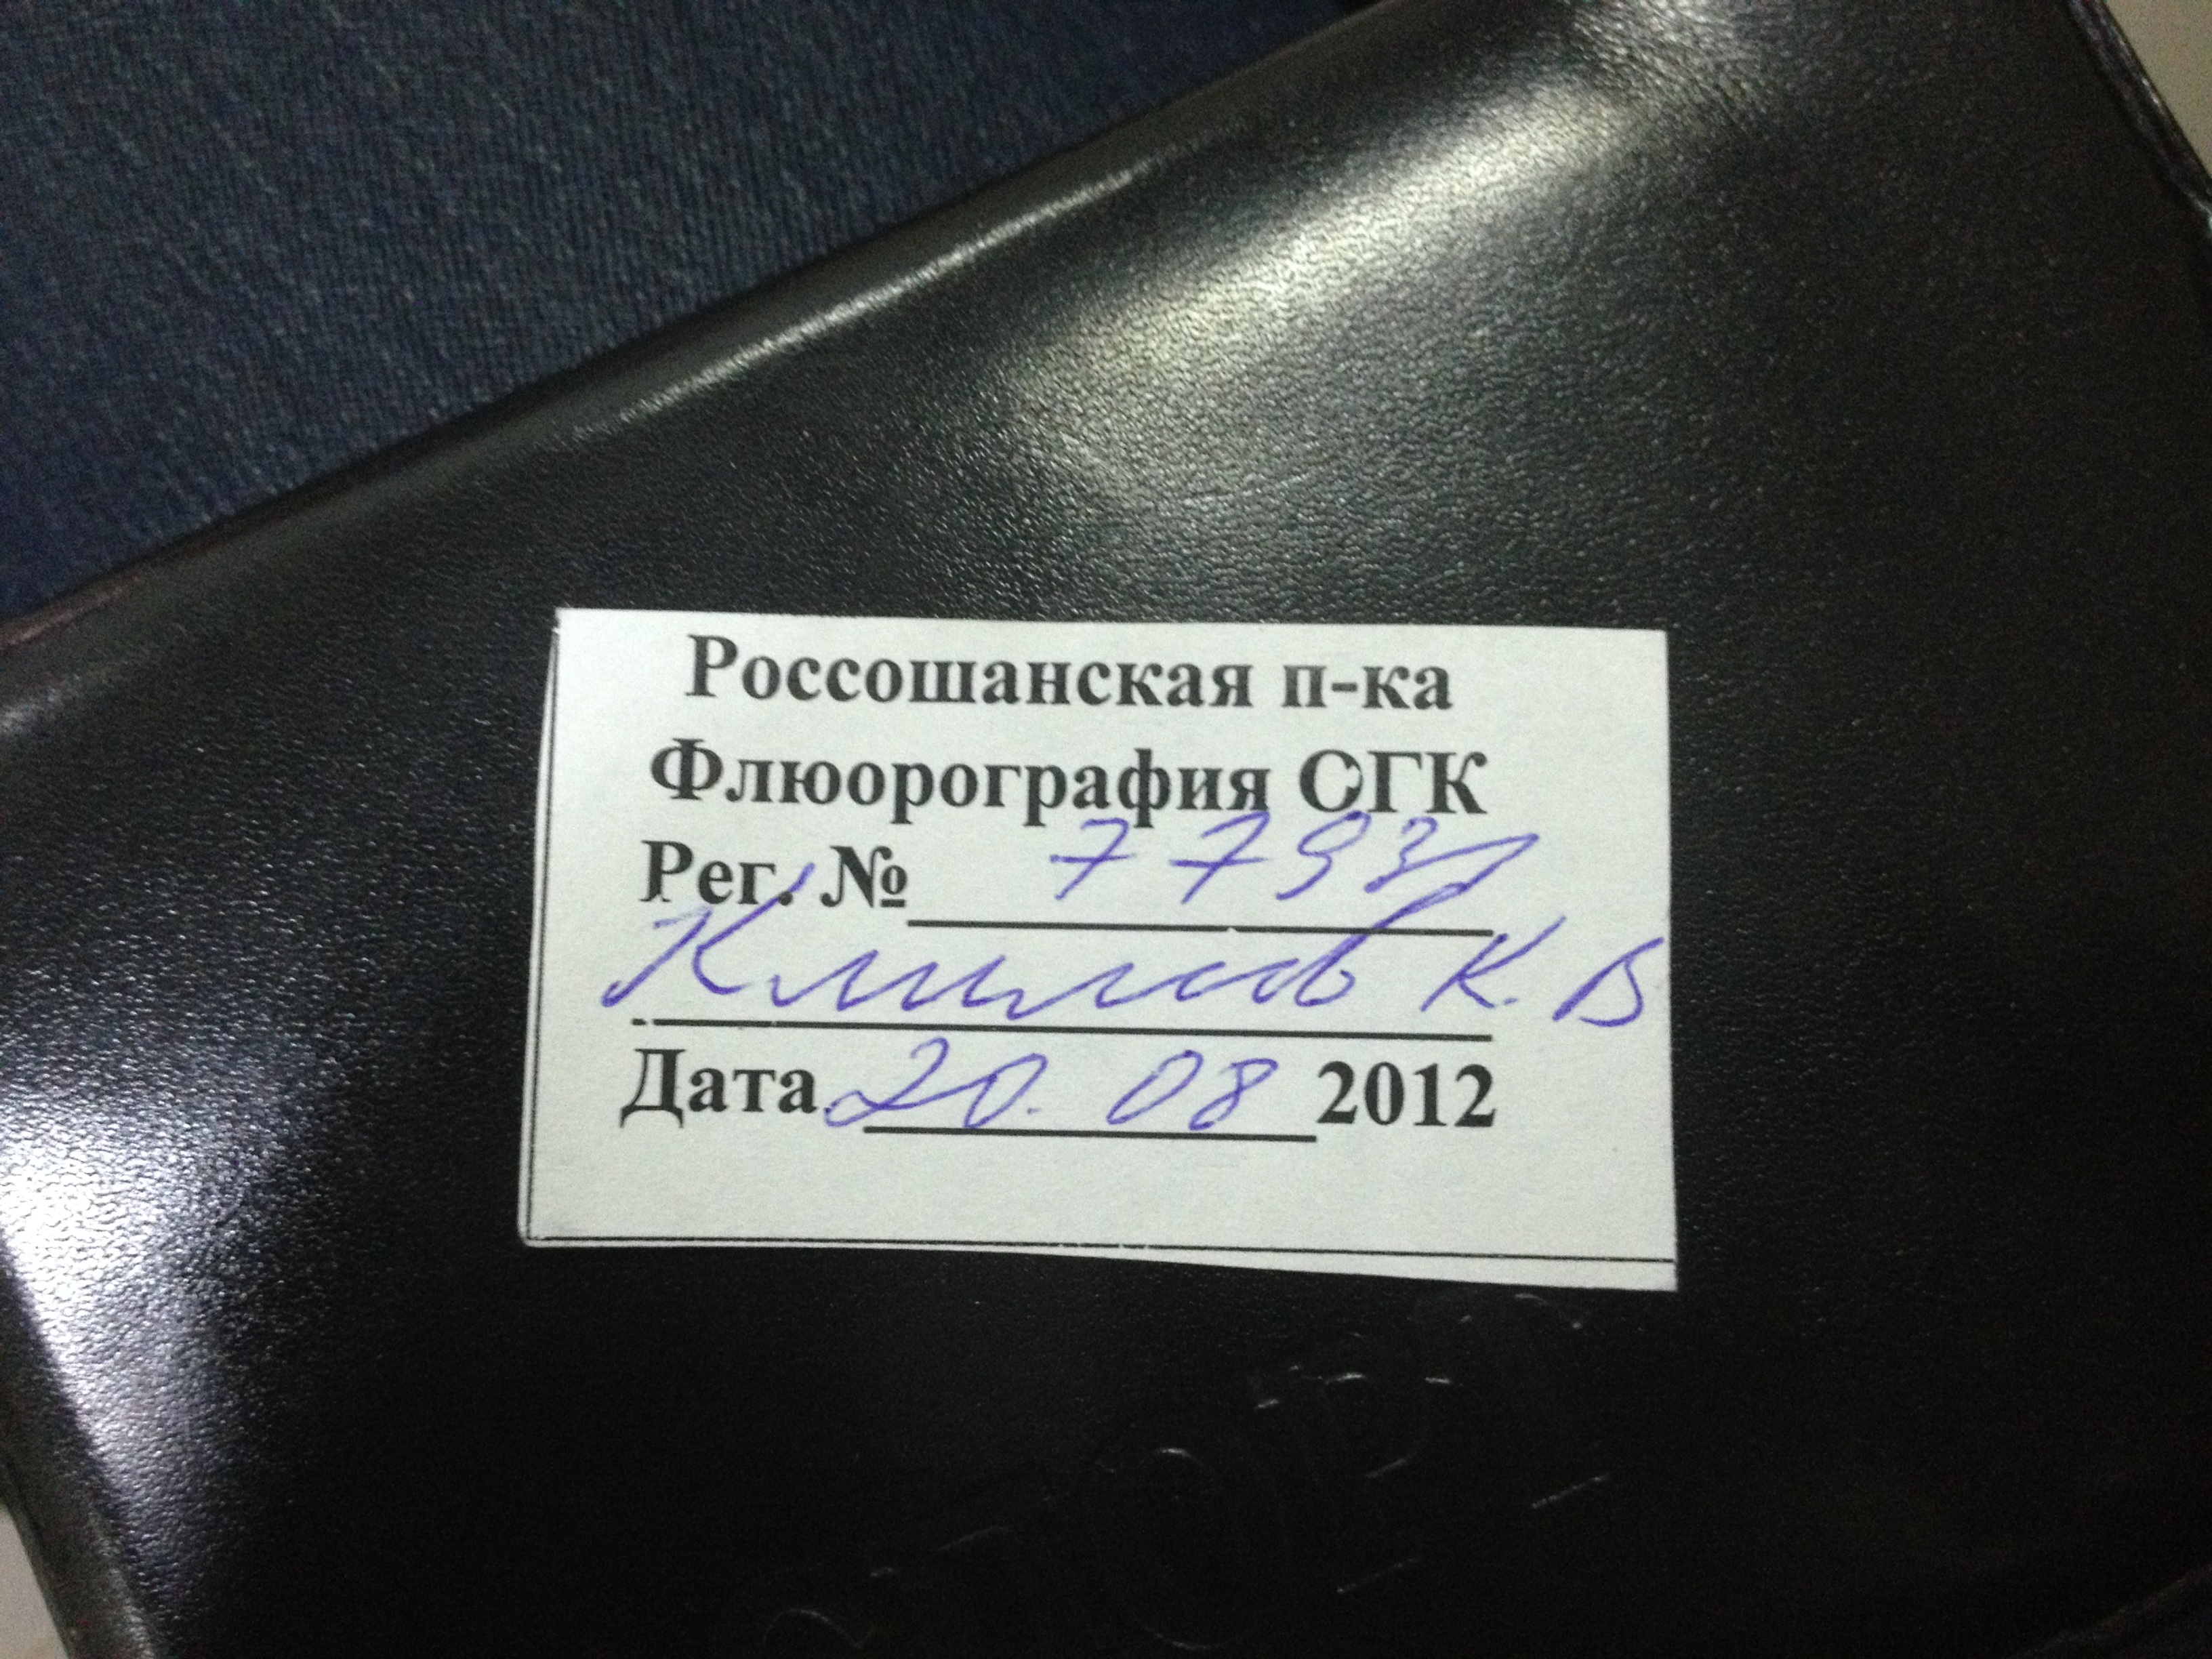 Россошанская п-ка
Флюорография ОГК
Рег. № 7793
Климов К. В
Дата 20. 08 2012